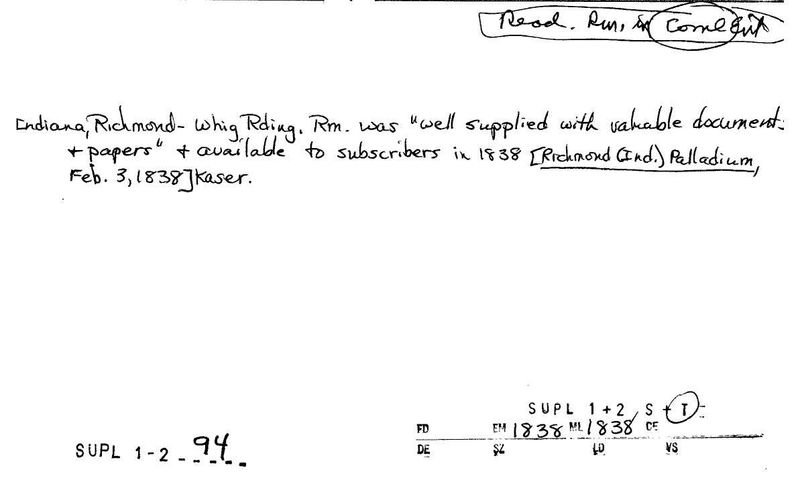 Read. Rm. in Coml Ent
Indiana, Richmond- Whig Rding. Rm. was "well supplied with valuable document-
+ papers" + available to subscribers in 1838 [Richmond (Ind.) Palladium,
Feb. 3, 1838] Kaser.
SUPL 1+2, S + T-
FD EM 1838 ML 1838 CE
DE SZ LD VS
SUPL 1-2 - 94